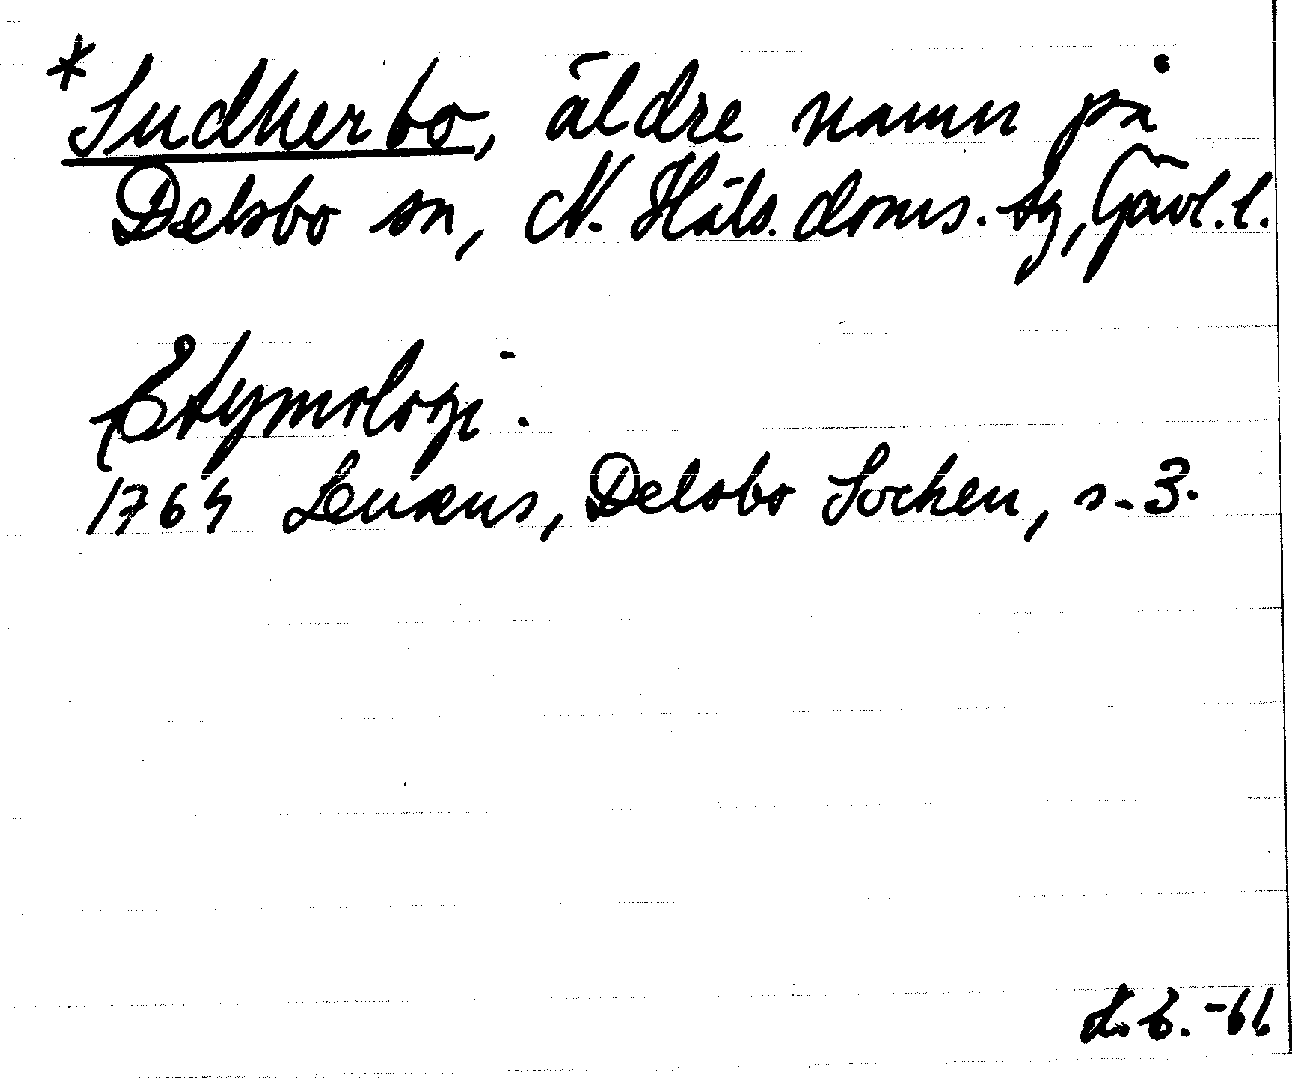 *Sudherbo, äldre namn på
Delsbo sn, N. Häls. doms. tg, Gävl. l.
Etymologi.
1764 Lenæus, Delsbo Socken, s. 3.
-66